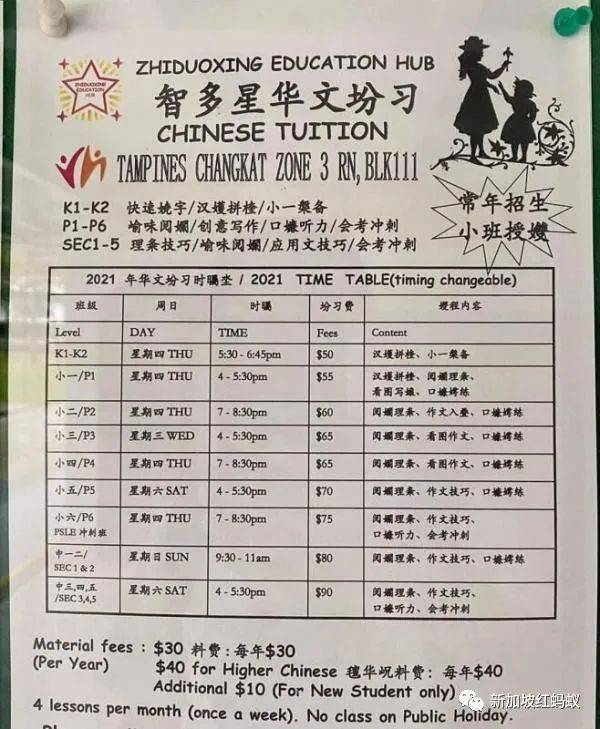 ZHIDUOXING EDUCATION HUB
ZHIDUOXING EDUCATION HUB
智多星华文坋习
CHINESE TUITION
TAMPINES CHANGKAT ZONE 3 RN, BLK111
K1-K2 快速娆字/汉嫚拼桩/小一椝备
P1-P6 喻味阅斓/创意写作/口嫌听力/会考冲刺
SEC1-5 理条技巧/喻味阅斓/应用文技巧/会考冲刺
常年招生
小班授嫂
2021 年华文坋习时瞩坔 / 2021 TIME TABLE(timing changeable)
班級 周日 时瞩 坋习费 授程内容
Level DAY TIME Fees Content
K1-K2 星期四 THU 5:30 - 6:45pm $50 汉嫚拼桩、小一椝备
小一/P1 星期四 THU 4 - 5:30pm $55 汉嫚拼桩、阅斓理条、
看图写嬢、口嫌嫮练
小二/P2 星期四 THU 7 - 8:30pm $60 阅斓理条、作文入叠、口嫌嫮练
小三/P3 星期三 WED 4 - 5:30pm $65 阅斓理条、看图作文、口嫌嫮练
小四/P4 星期四 THU 7 - 8:30pm $65 阅斓理条、看图作文、口嫌嫮练
小五/P5 星期六 SAT 4 - 5:30pm $70 阅斓理条、作文技巧、口嫌嫮练
小六/P6 星期四 THU 7 - 8:30pm $75 阅斓理条、作文技巧、
PSLE 冲刺班 口嫌听力、会考冲刺
中一二/ 星期日 SUN 9:30 - 11am $80 阅斓理条、作文技巧、口嫌嫮练
SEC 1 & 2
中三,四,五 星期六 SAT 4 - 5:30pm $90 阅斓理条、作文技巧、
/SEC 3,4,5 口嫌听力、会考冲刺
Material fees : $30 料费: 每年$30
(Per Year) $40 for Higher Chinese 氇华呪料费: 每年$40
Additional $10 (For New Student only)
4 lessons per month (once a week). No class on Public Holiday.
新加坡红蚂蚁